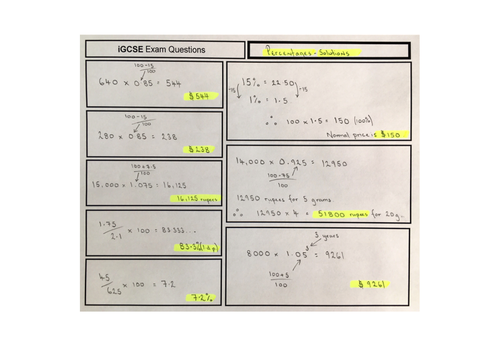 iGCSE Exam Questions
Percentages - Solutions
100-15
100
640 x 0.85 = 544
$544
100-15
100
280 x 0.85 = 238
$238
100+7.5
100
15,000 x 1.075 = 16,125
16,125 rupees
1.75
2.1 x 100 = 83.333...
83.3%(1dp)
45
625 x 100 = 7.2
7.2%
15% = 22.50
÷15 ÷15
1% = 1.5
∴ 100 x 1.5 = 150 (100%)
Normal price is $150
14,000 x 0.925 = 12950
100-7.5
100
12950 rupees for 5 grams
∴ 12950 x 4 = 51800 rupees for 20g.
3 years
8000 x 1.05³ = 9261
100+5
100
$9261